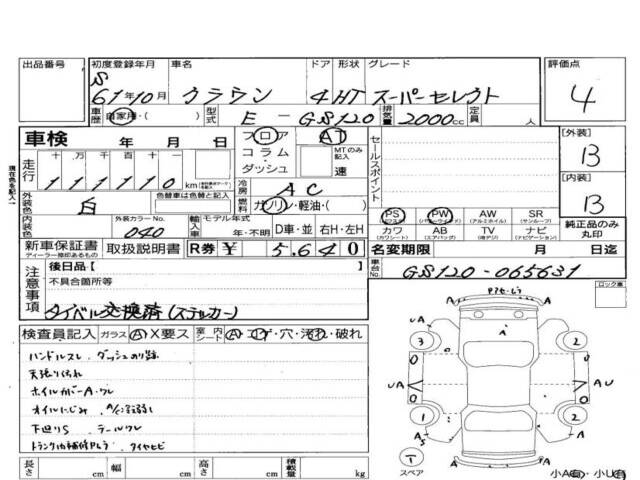 出品番号 初度登録年月 車名 ドア 形状 グレード 評価点
S 61年10月 クラウン 4 HT スーパーセレクト 4
車歴 自家用・( ) 型式 E-GS120 排気量 2000cc 定員 人
車検 年 月 日 フロア AT
コラム MTのみ記入
ダッシュ 速
走行 十 万 千 百 十 一
111110 km
冷房 AC
燃料 ガソリン・軽油・( )
セールスポイント
[外装]
B
[内装]
B
外装色 白 色替車は色替と記入
内装色 外装カラーNo. 040 輸入車 モデル年式 年・不明 D車・並 右H・左H
PS PW AW SR
(パワステ) (パワーウインド) (アルミホイル) (サンルーフ)
カワ AB TV ナビ
(カワシート) (エアバッグ) (地デジ) (ナビゲーション)
純正品のみ丸印
新車保証書 取扱説明書 R券 ¥ 5,640
ディーラー捺印あるもの
名変期限 月 日迄
車台No. GS120-065631
現在色を記入
注意事項 後日品【 】
不具合箇所等
タイベル交換済(ステッカー)
ロック車
検査員記入 ガラス A・X要ス 室内シート A・コゲ・穴・汚れ・破れ
ハンドルスレ、ダッシュのり跡
天張り汚れ
ホイルカバーA・ワレ
オイルにじみ、A/C冷え弱し
下廻りS テールワレ
トランク内補修Pムラ タイヤヒビ
A A A
uA A A
3 2
UA AU
1 2
A A
As A A
T
スペア
小A有・小U有
長さ cm 幅 cm 高さ cm 積載量 kg